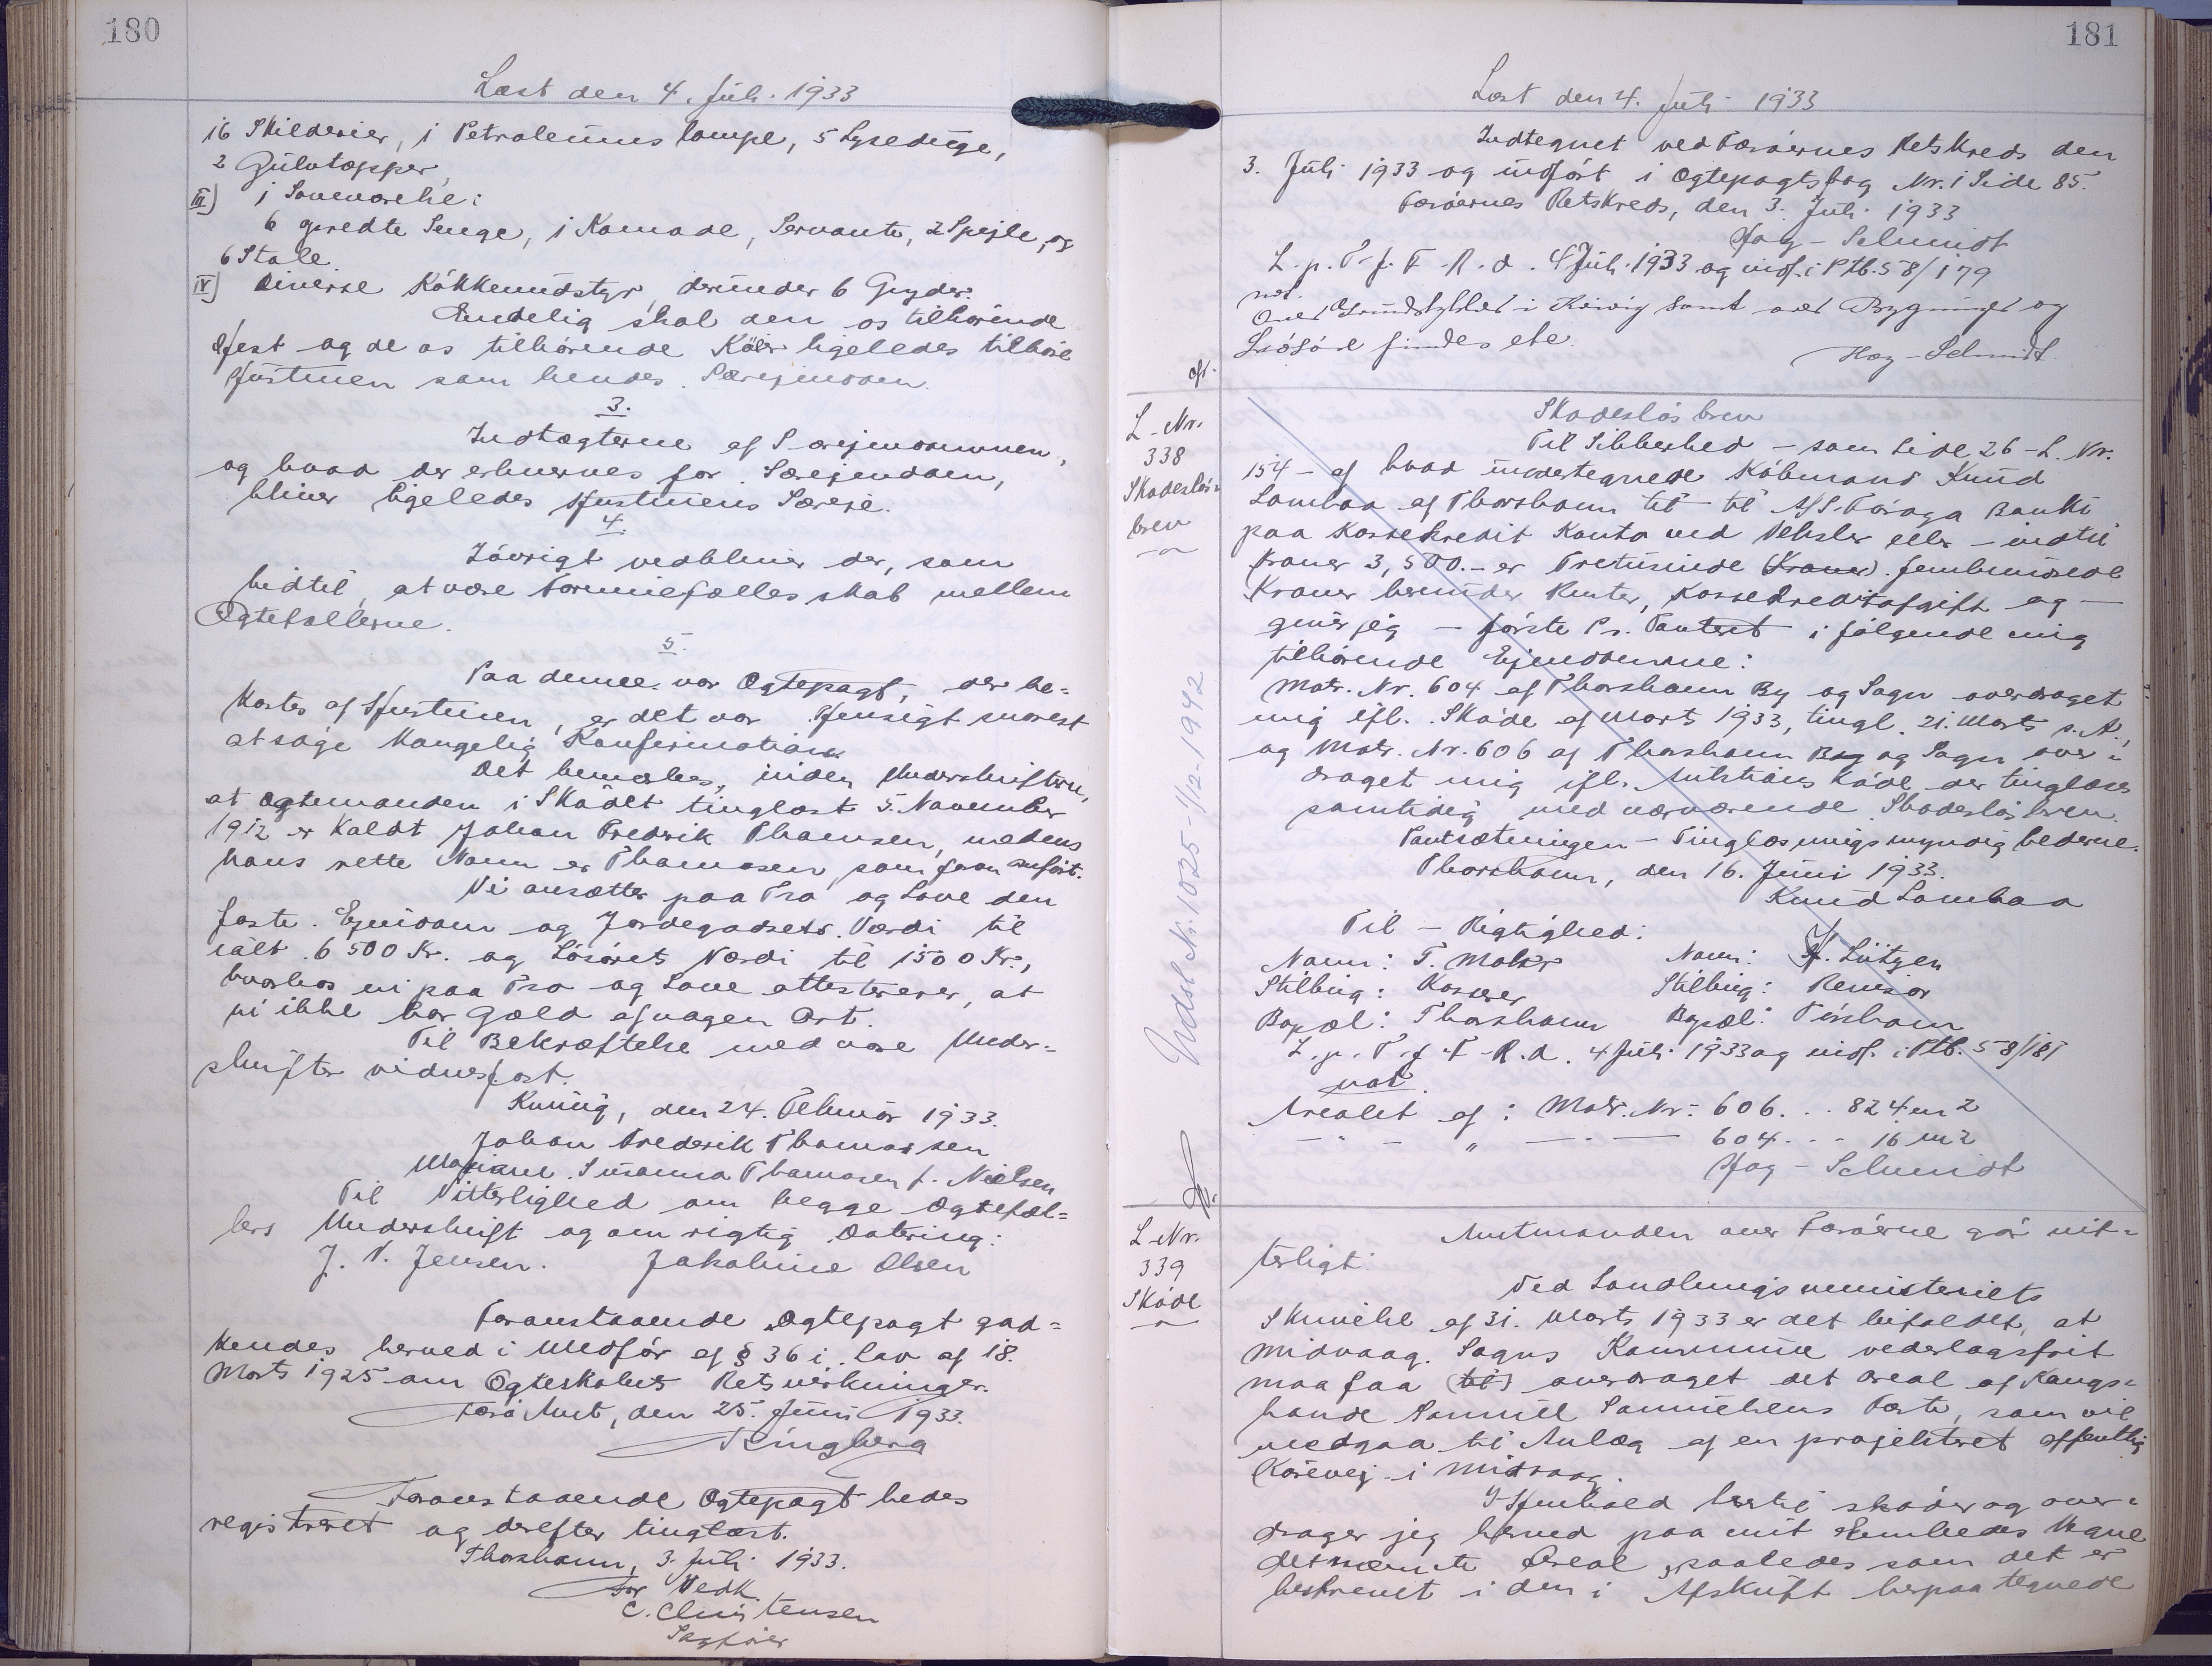 180
Læst den 4. Juli 1933
16 Skilderier, 1 Petroleums lampe, 5 Lysedúge,
2 Gúlvtæpper,
III) i Soveværelse:
6 goredte Senge, 1 Komode, Servante, 2 Spejle, og
6 Stole
IV) Diverse Kökkenúdstyr, derúnder 6 Gryder.
Endelig skal den os tilhörende
Hest og de os tilhörende Köer ligeledes tilhöre
Hústrúen som hendes Særejendom.
3.
Indtægterne af Særejendommen,
og hvad der erhverves for Særejendom,
bliver ligeledes Hustruens Særeje.
4.
Iövrigt vedbliver der, som
hidtil, at være Formúefællesskab mellem
Ægtefællerne.
5.
Paa denne vor Ægtepagt, der be=
kostes af Hústrúen, er det vor Hensigt snarest
at söge Kongelig Konfirmation
Det bemærkes, inden Underskriften,
at Ægtemanden i Sködet tinglæst 5. November
1912 er kaldt Johan Fredrik Thomsen, medens
hans rette Navn er Thomasen, som foran anfört.
Vi ansætter paa Tro og Love den
faste Ejendom og Jordegodsets Værdi til
ialt 6500 Kr. og Lösörets Værdi til 1500 Kr.,
hvorhos vi paa Tro og Love attesterer, at
vi ikke har Gæld af nogen Art.
Til Bekræftelse med vore Under=
skrifter vidnesfast.
Kvivig, den 24. Febrúar 1933.
Johan Frederik Thomassen
Mariane Súsanna Thomasen f. Nielsen
Til Vitterlighed om begge Ægtefæl=
lers Underskrift og om rigtig Datering:
J. V. Jensen. Jakobine Olsen
Foranstaaende Ægtepagt god=
kendes herved i Medför af § 36 i Lov af 18.
Marts 1925 om Ægteskabets Retsvirkninger.
Færö Amt, den 25. Júni 1933.
Ringberg
Foranstaaende Ægtepagt bedes
registreret og derefter tinglæst.
Thorshavn, 3. Júli 1933.
For Vedk.
C. Christensen
Sagförer
181
Læst den 4. Júli 1933
Indtegnet ved Færöernes Retskreds den
3. Júli 1933 og indfört i Ægtepagtsbog Nr. 1 Side 85.
Færöernes Retskreds, den 3. Júli 1933
Hag-Schmidt
L. p. T. f. F. R. d. 4 Júli 1933 og indf. i Ptb. 58/179
not.
Over Grúndstykket i Kvivig samt over Bygninger og
Lösöre findes ette.
Hag-Schmidt
cfr.
L. Nr.
338
Skadeslös=
brev
Skadeslösbrev
Til Sikkerhed - som Side 26 - L. Nr.
154 - af hvad úndertegnede Köbmand Knúd
Lambaa af Thorshavn til - til A/S. Föroya Banki
paa Kassekredit Konto ved Veksler eller - indtil
Kroner 3,500.- er Tretúsinde (Kroner). femhúndrede
Kroner herúnder Renter, Kassekreditafgift og -
giver jeg - förste Pr. Panteret i fölgende mig
tilhörende Ejendomme:
Matr. Nr. 604 af Thorshavn By og Sogn overdraget
mig ifl. Sköde af Marts 1933, tingl. 21. Marts s. A.,
og Matr. Nr. 606 af Thorshavn By og Sogn over=
draget mig ifl. Auktionssköde der tinglæses
samtidig med nærværende Skadeslösbrev.
Pantsætningen - Tinglæsningsmyndighederne.
Thorshavn, den 16. Júni 1933.
Knúd Lambaa
Til - Rigtighed:
Navn: T. Mohr Navn: H. Lützen
Stilling: Kasserer Stilling: Revisor
Bopæl: Thorshavn Bopæl: Tórshavn
L. p. T. f. F. R. d. 4 Júli 1933 og indf. i Ptb. 58/181
not.
Arealet af: Matr. Nr. 606... 824 m2
- " - " - . - 604... 16 m2
Hag-Schmidt
Indsl Nr. 1025 - 1/12-1942
L. Nr.
339
Sköde
Amtmanden over Færöerne gör vit=
terligt:
Ved Landbrúgsministeriets
Skrivelse af 31. Marts 1933 er det bifaldet, at
Midvaag Sogns Kommúne vederlagsfrit
maa faa (til) overdraget det Areal af Kongs=
bonde Samúel Samúelsens Fæste, som vil
medgaa til Anlæg af en projekteret offentlig
Körevej i Midvaag.
I Henhold hertil sköder og over=
drager jeg herved paa mit Embedes Vegne
det nævnte Areal, saaledes som det er
beskrevet i den i Afskrift herpaa tegnede